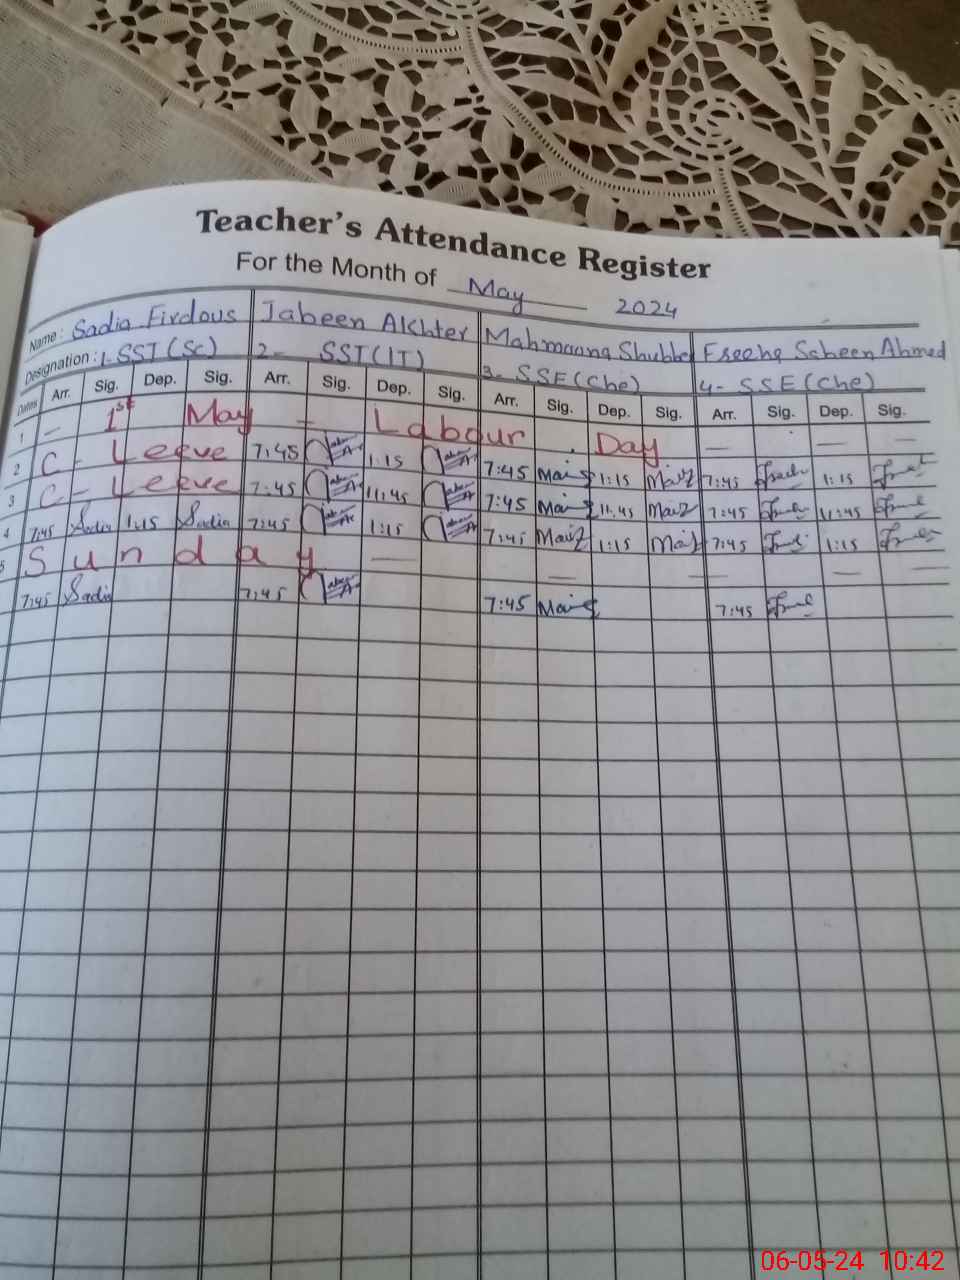 Teacher's Attendance Register
For the Month of May 2024
Name: Sadia Firdous Jabeen Akhter Mahmaana Shubbe Freeha Saheen Ahmed
Designation: 1-SST(Sc) 2- SST(IT) 3- SSE(Che) 4- SSE(Che)
Dates Arr. Sig. Dep. Sig. Arr. Sig. Dep. Sig. Arr. Sig. Dep. Sig. Arr. Sig. Dep. Sig.
1 — 1st May — Labour Day — — —
2 C - Leeve 7:45 1:15 7:45 1:15 7:45 1:15
3 C - Leeve 7:45 11:45 7:45 11:45 7:45 11:45
4 7:45 Sadia 1:15 Sadia 7:45 1:15 7:45 1:15 7:45 1:15
5 Sunday — — — — —
7:45 Sadia 7:45 7:45 7:45
06-05-24 10:42